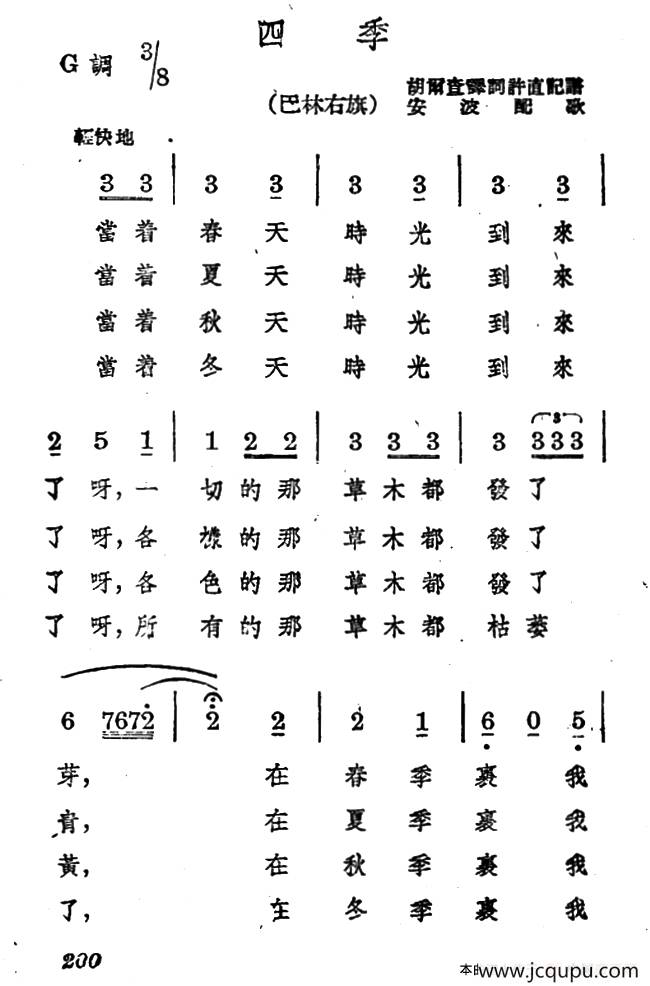 四 季
G 調 3/8
胡爾查譯詞 許直記譜
(巴林右旗) 安波配歌
輕快地
3 3 | 3 3 | 3 3 | 3 3 |
當着 春天 時光 到來
當着 夏天 時光 到來
當着 秋天 時光 到來
當着 冬天 時光 到來
2 5 1 | 1 2 2 | 3 3 3 | 3 333 |
了呀,一 切的那 草木都 發了
了呀,各 樣的那 草木都 發了
了呀,各 色的那 草木都 發了
了呀,所 有的那 草木都 枯萎
6 7672 | 2 2 | 2 1 | 6 0 5 |
芽, 在 春季 裏 我
青, 在 夏季 裏 我
黃, 在 秋季 裏 我
了, 在 冬季 裏 我
200
www.jcqupu.com